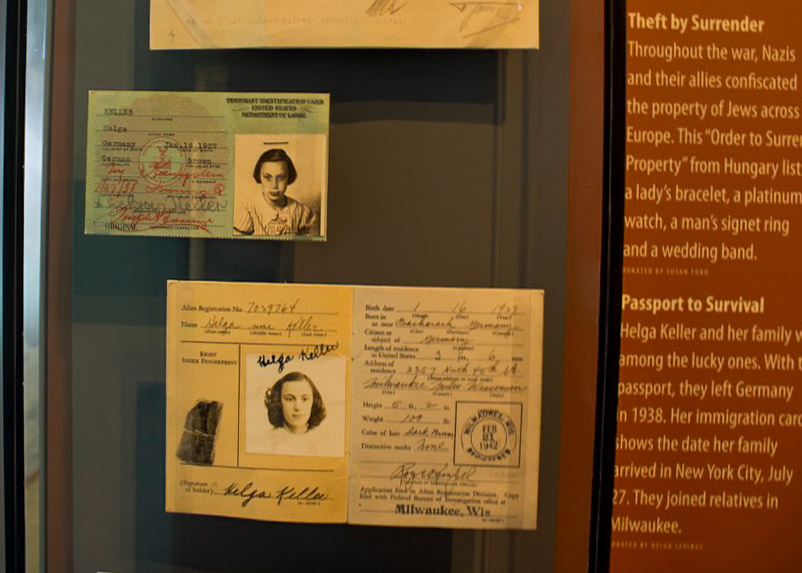 IMMIGRANT IDENTIFICATION CARD
UNITED STATES
DEPARTMENT OF LABOR
KELLER
SURNAME
Helga
GIVEN NAME
Germany Jan.16,1927
German brown
7/27/38
Helga Keller
ORIGINAL
Alien Registration No. 7039764
Name Helga Keller
RIGHT
INDEX FINGERPRINT
Helga Keller
(Signature
of holder) Helga Keller
Birth date 1 16 1927
(Month) (Day) (Year)
Born in
or near Bacharach Germany
Citizen or
subject of Germany
Length of residence
in United States 3 yrs. 6 mos.
Address of
residence 2357 North 45th St.
Milwaukee Wisconsin
Height 5 ft. 2 in.
Weight 109 lb.
Color of hair Dark Brown
Distinctive marks None
MILWAUKEE, WIS.
FEB
1942
REGISTERED
Application filed in Alien Registration Division. Copy
filed with Federal Bureau of Investigation office at
Milwaukee, Wis
Theft by Surrender
Throughout the war, Nazis
and their allies confiscated
the property of Jews across
Europe. This “Order to Surre
Property” from Hungary list
a lady’s bracelet, a platinum
watch, a man’s signet ring
and a wedding band.
DONATED BY SUSAN FONG
Passport to Survival
Helga Keller and her family w
among the lucky ones. With t
passport, they left Germany
in 1938. Her immigration card
shows the date her family
arrived in New York City, July
27. They joined relatives in
Milwaukee.
DONATED BY HELGA